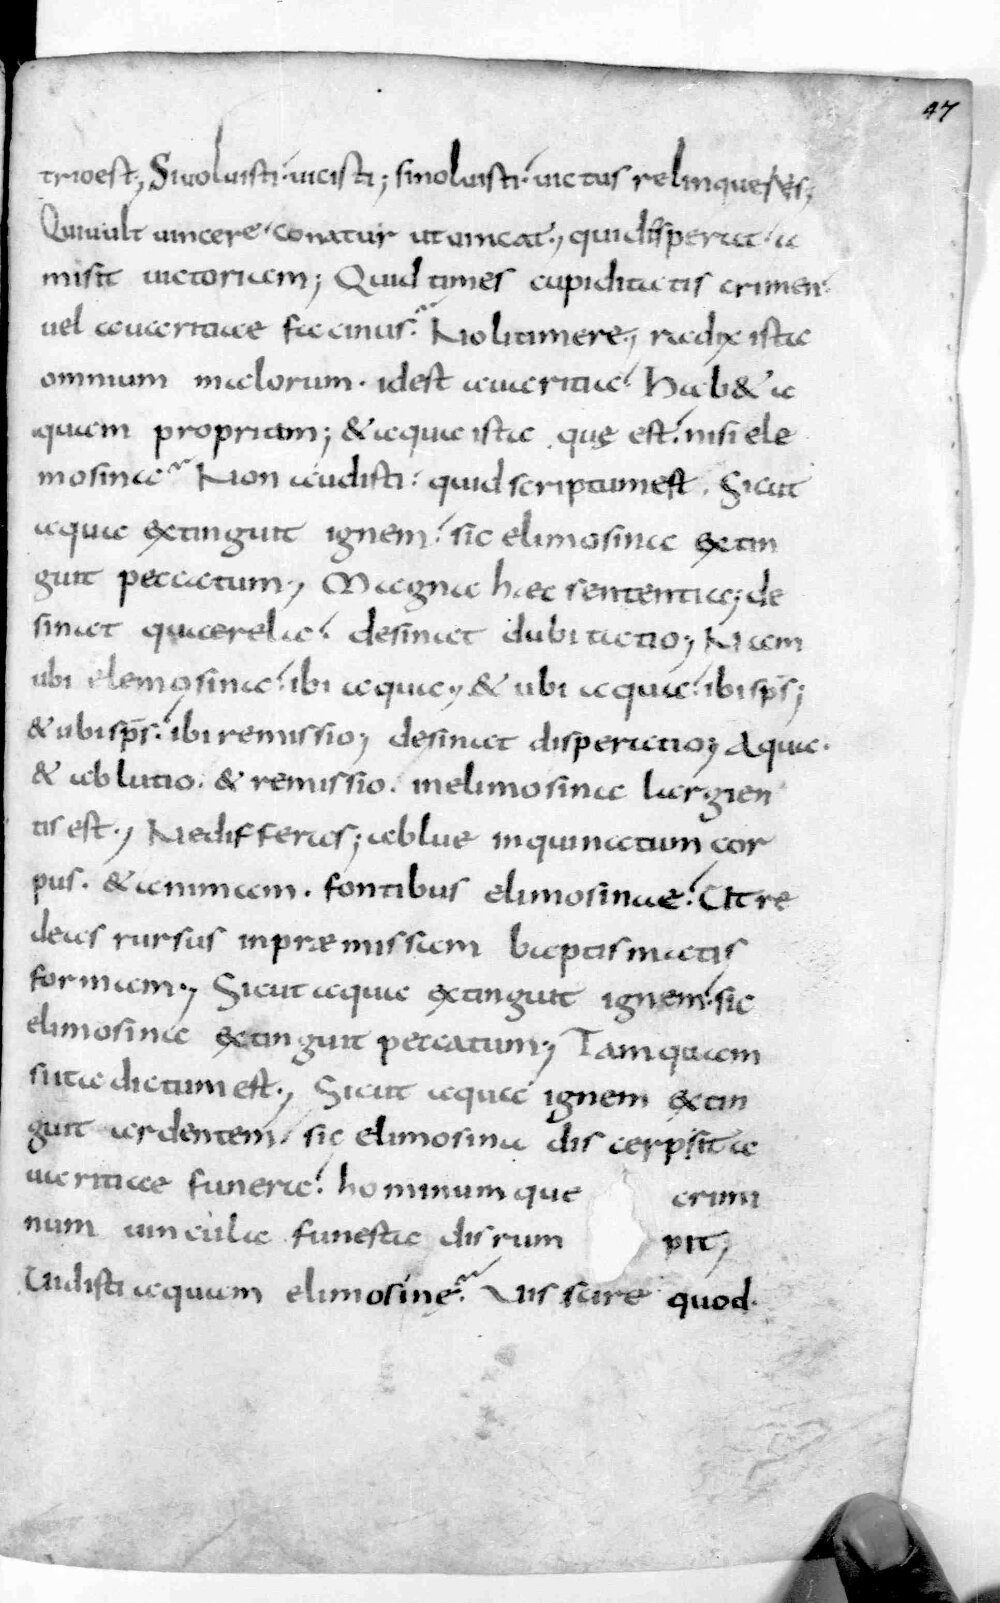 47
trio est; Si uoluisti· uicisti; si noluisti· uictus relinqueris;
Qui uult uincere· conatur ut uincat; qui disperat· a
misit uictoriam; Quid times cupiditatis crimen·
uel auaritiae facinus? Noli timere; radix ista
omnium malorum· id est auaritia· hab& a
quam propriam; & aqua ista quę est· nisi ele
mosina? Non audisti· quid scriptum est. Sicut
aqua extinguit ignem· sic elimosina extin
guit peccatum; Magna haec sententia; de
sinat quaerela· desinat dubitatio; Nam
ubi elemosina· ibi aqua; & ubi aqua· ibi sp̄s;
& ubi sp̄s· ibi remissio; desinat disperatio; Aqua·
& ablutio· & remissio· in elimosina largien
tis est; Ne differas; ablue inquinatum cor
pus· & animam· fontibus elimosinae· Ut re
deas rursus in praemissam baptismatis
formam; Sicut aqua extinguit ignem· sic
elimosina extinguit peccatum; Tamquam
si ita dictum est; Sicut aqua ignem extin
guit ardentem· sic elimosina discerpsit a
uaritiae funera· hominumque crimi
num uincula funesta disrum pit;
Uidisti aquam elimosinę? Vis scire quod·